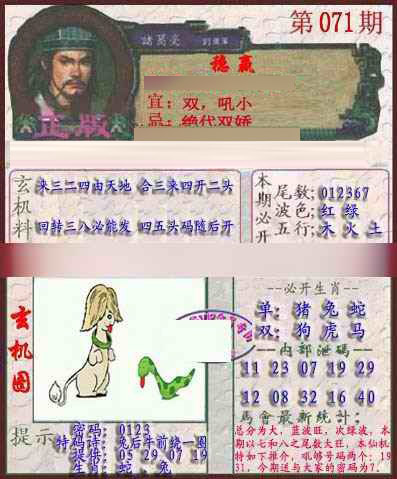 第071期
諸葛亮
穩赢
宜：双，吼小
忌：绝代双娇
正版
玄机料
来三二四由天地 合三来四开二头
回转三八必能发 四五头码随后开
本期必开
尾数：012367
波色：红 绿
五行：木 火 土
玄机图
--必开生肖--
单：猪 兔 蛇
双：狗 虎 马
--内部泄码--
11 23 07 19 29
12 08 32 16 40
馬會最新統計：
总分为大，蓝波旺，次绿波，本
期以七和八之尾数大旺，本仙机
特如下推介，吼够号码两个：19
31，今期送与大家的密码为7.
提示
密码：0123
特码诗：兔后牛前绕一圈
提供：05 29 07 19
生肖：蛇、兔